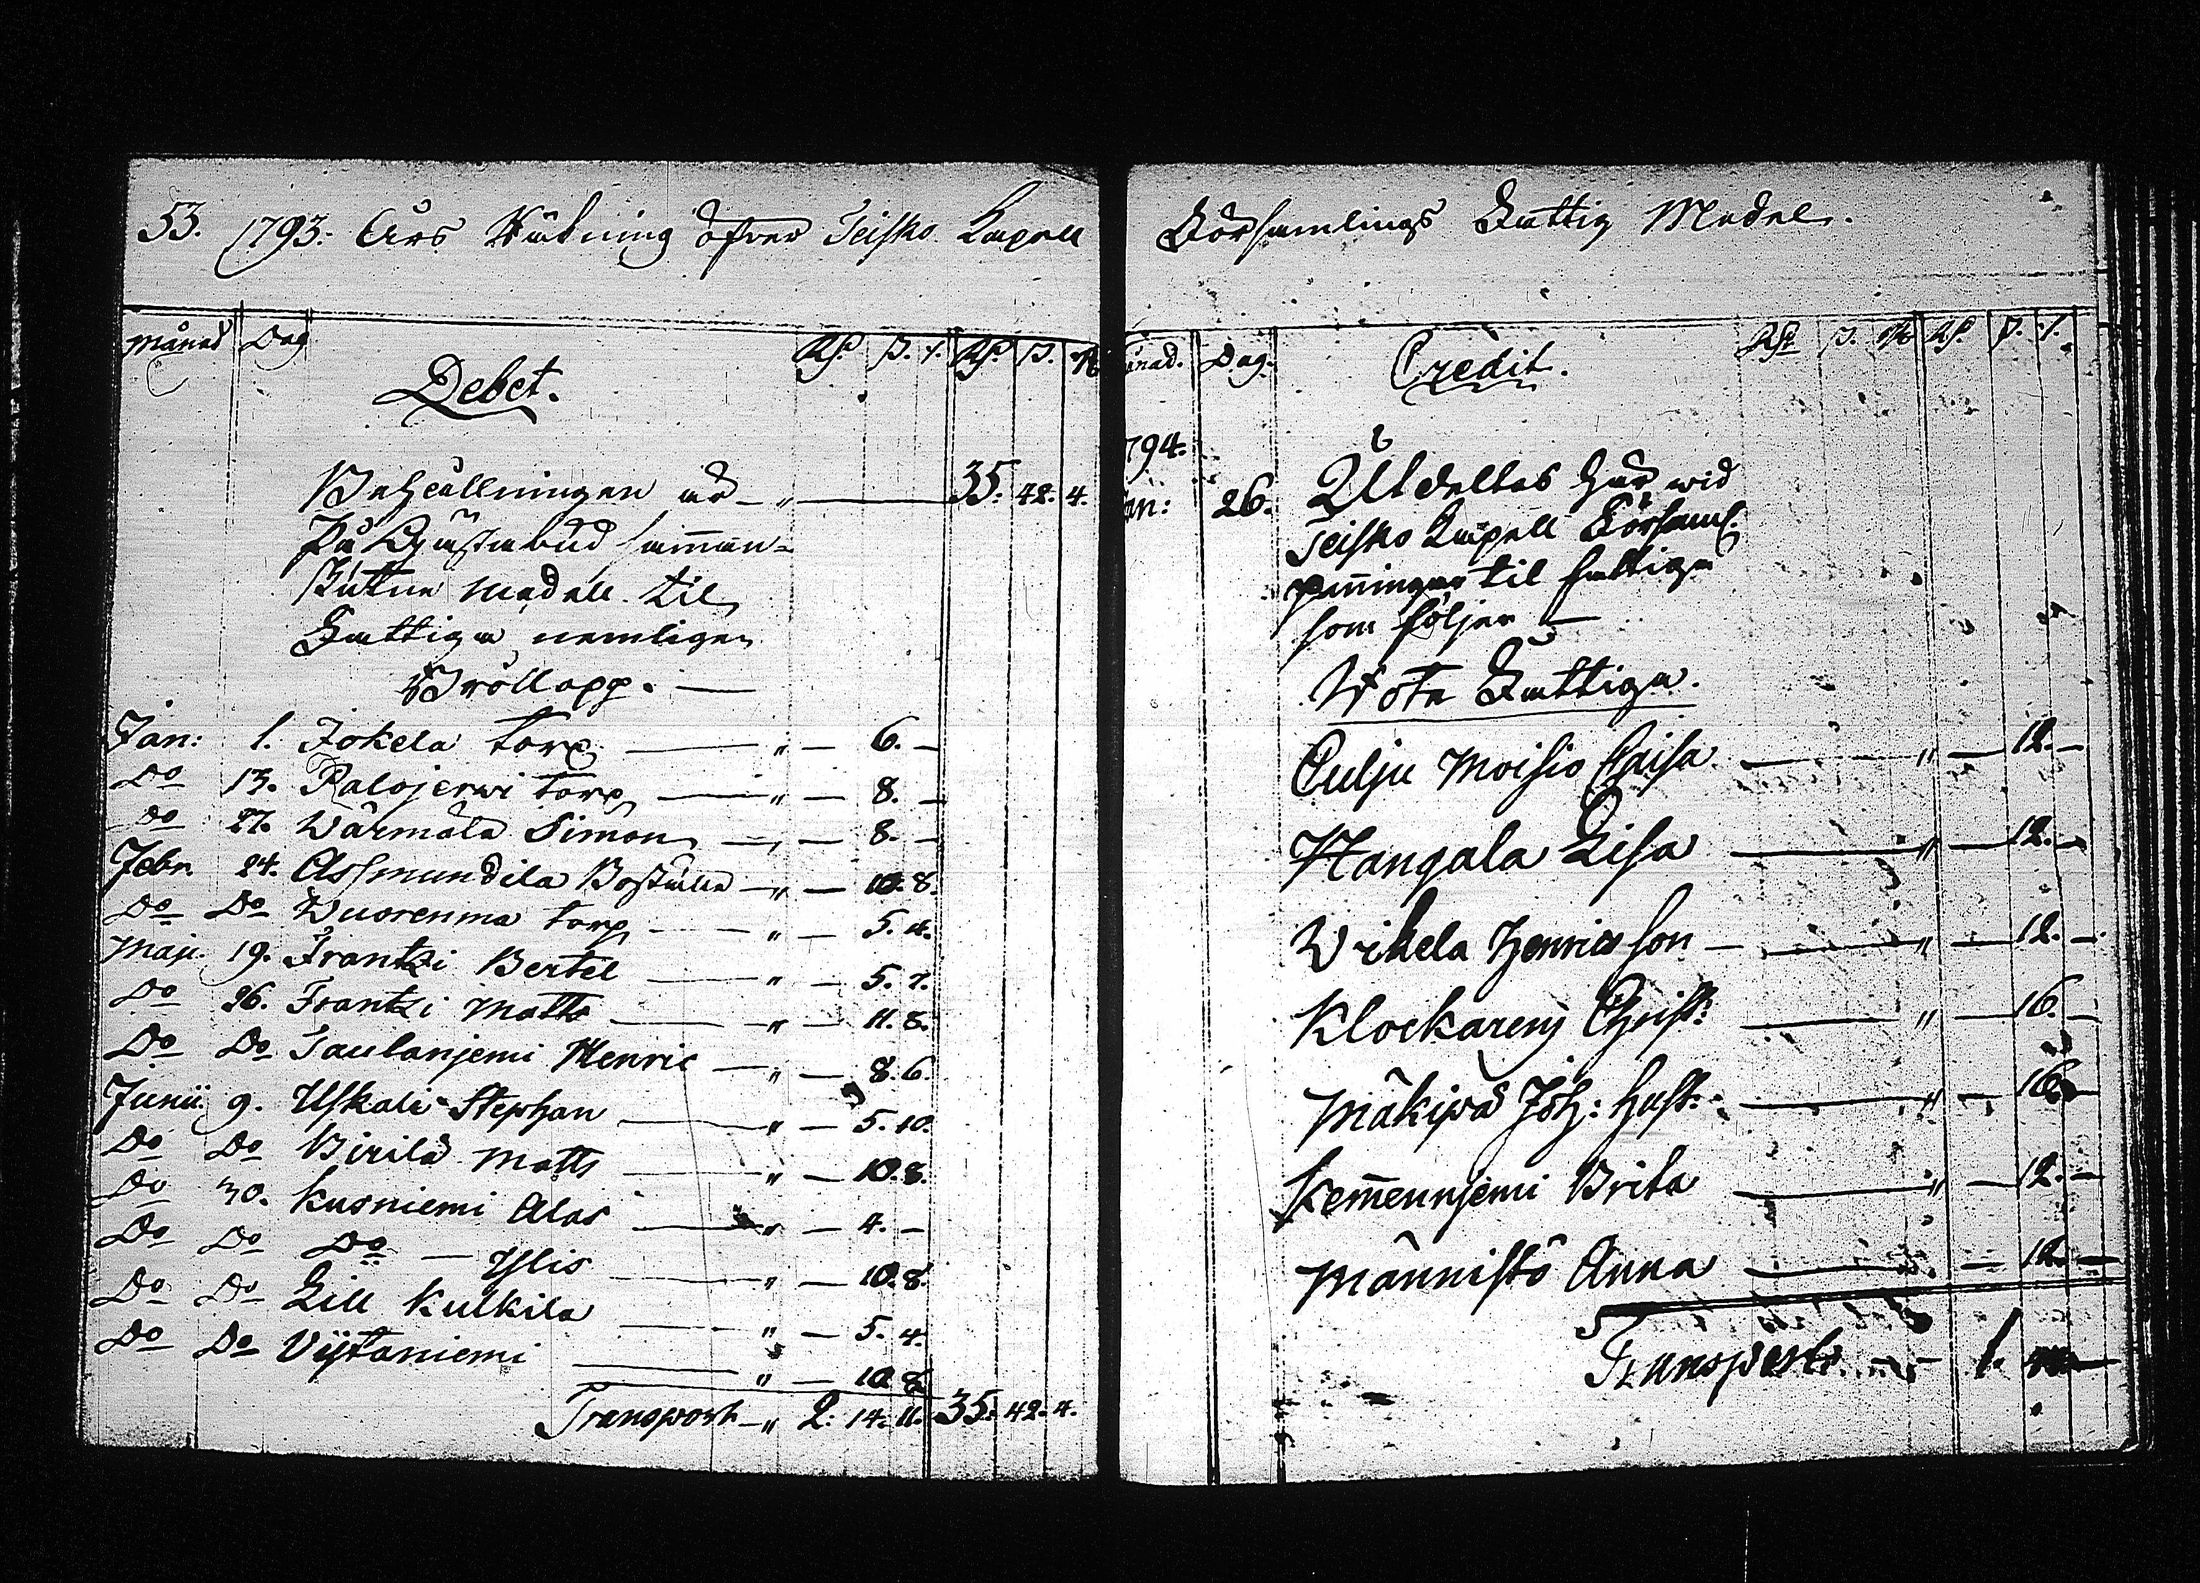 53. 1793. Års Räkning öfver Teisko Capell
Månad Dag Debet. Rd s. r. Rd s. r
Behållningen är — " — 35. 42. 4.
På Gjästabud samman-
skutne medell til
Fattiga nemligen
Bröllopp. —
Jan: 1. Jokela torp — " — 6. —
Do 13. Palojerwi torp — " — 8. —
Do 27. Wärmälä Simon — " — 8. —
Febr. 24. Assmundila Boställe — " — 10. 8.
Do Do Wuorenma torp — " — 5. 4.
Maji. 19. Frantzi Bertel — " — 5. 7.
Do 26. Frantzi Matts — " — 11. 8.
Do Do Taulanjemi Henric — " — 8. 6.
Junii. 9. Uskali Stephan — " — 5. 10.
Do Do Birilä Matts — " — 10. 8.
Do 30. Kusniemi Alas — " — 4. —
Do Do Do — Ylis — " — 10. 8.
Do Do Lill Kulkila — " — 5. 4.
Do Do Vijtaniemi — " — 10. 8.
Transport — " 2: 14. 11. 35: 42. 4.
Församlings Fattig Medel.
Månad. Dag. Credit. Rd s. r Rd. s. r.
1794.
Jan: 26. Utdeltes här wid
Teisko Capell Församl.
penningar til fattiga
som följer —
Rote Fattiga.
Culju Moisio Caisa — " — 12. —
Hangala Lisa — " — 12. —
Wikela Henricsson — " — 12. —
Klockarens Christ: — " — 16. —
Mäkipä Joh: hust: — " — 16. —
Kem̅enniemi Brita — " — 12. —
Männistö Anna — — 12. —
Transport — 1.